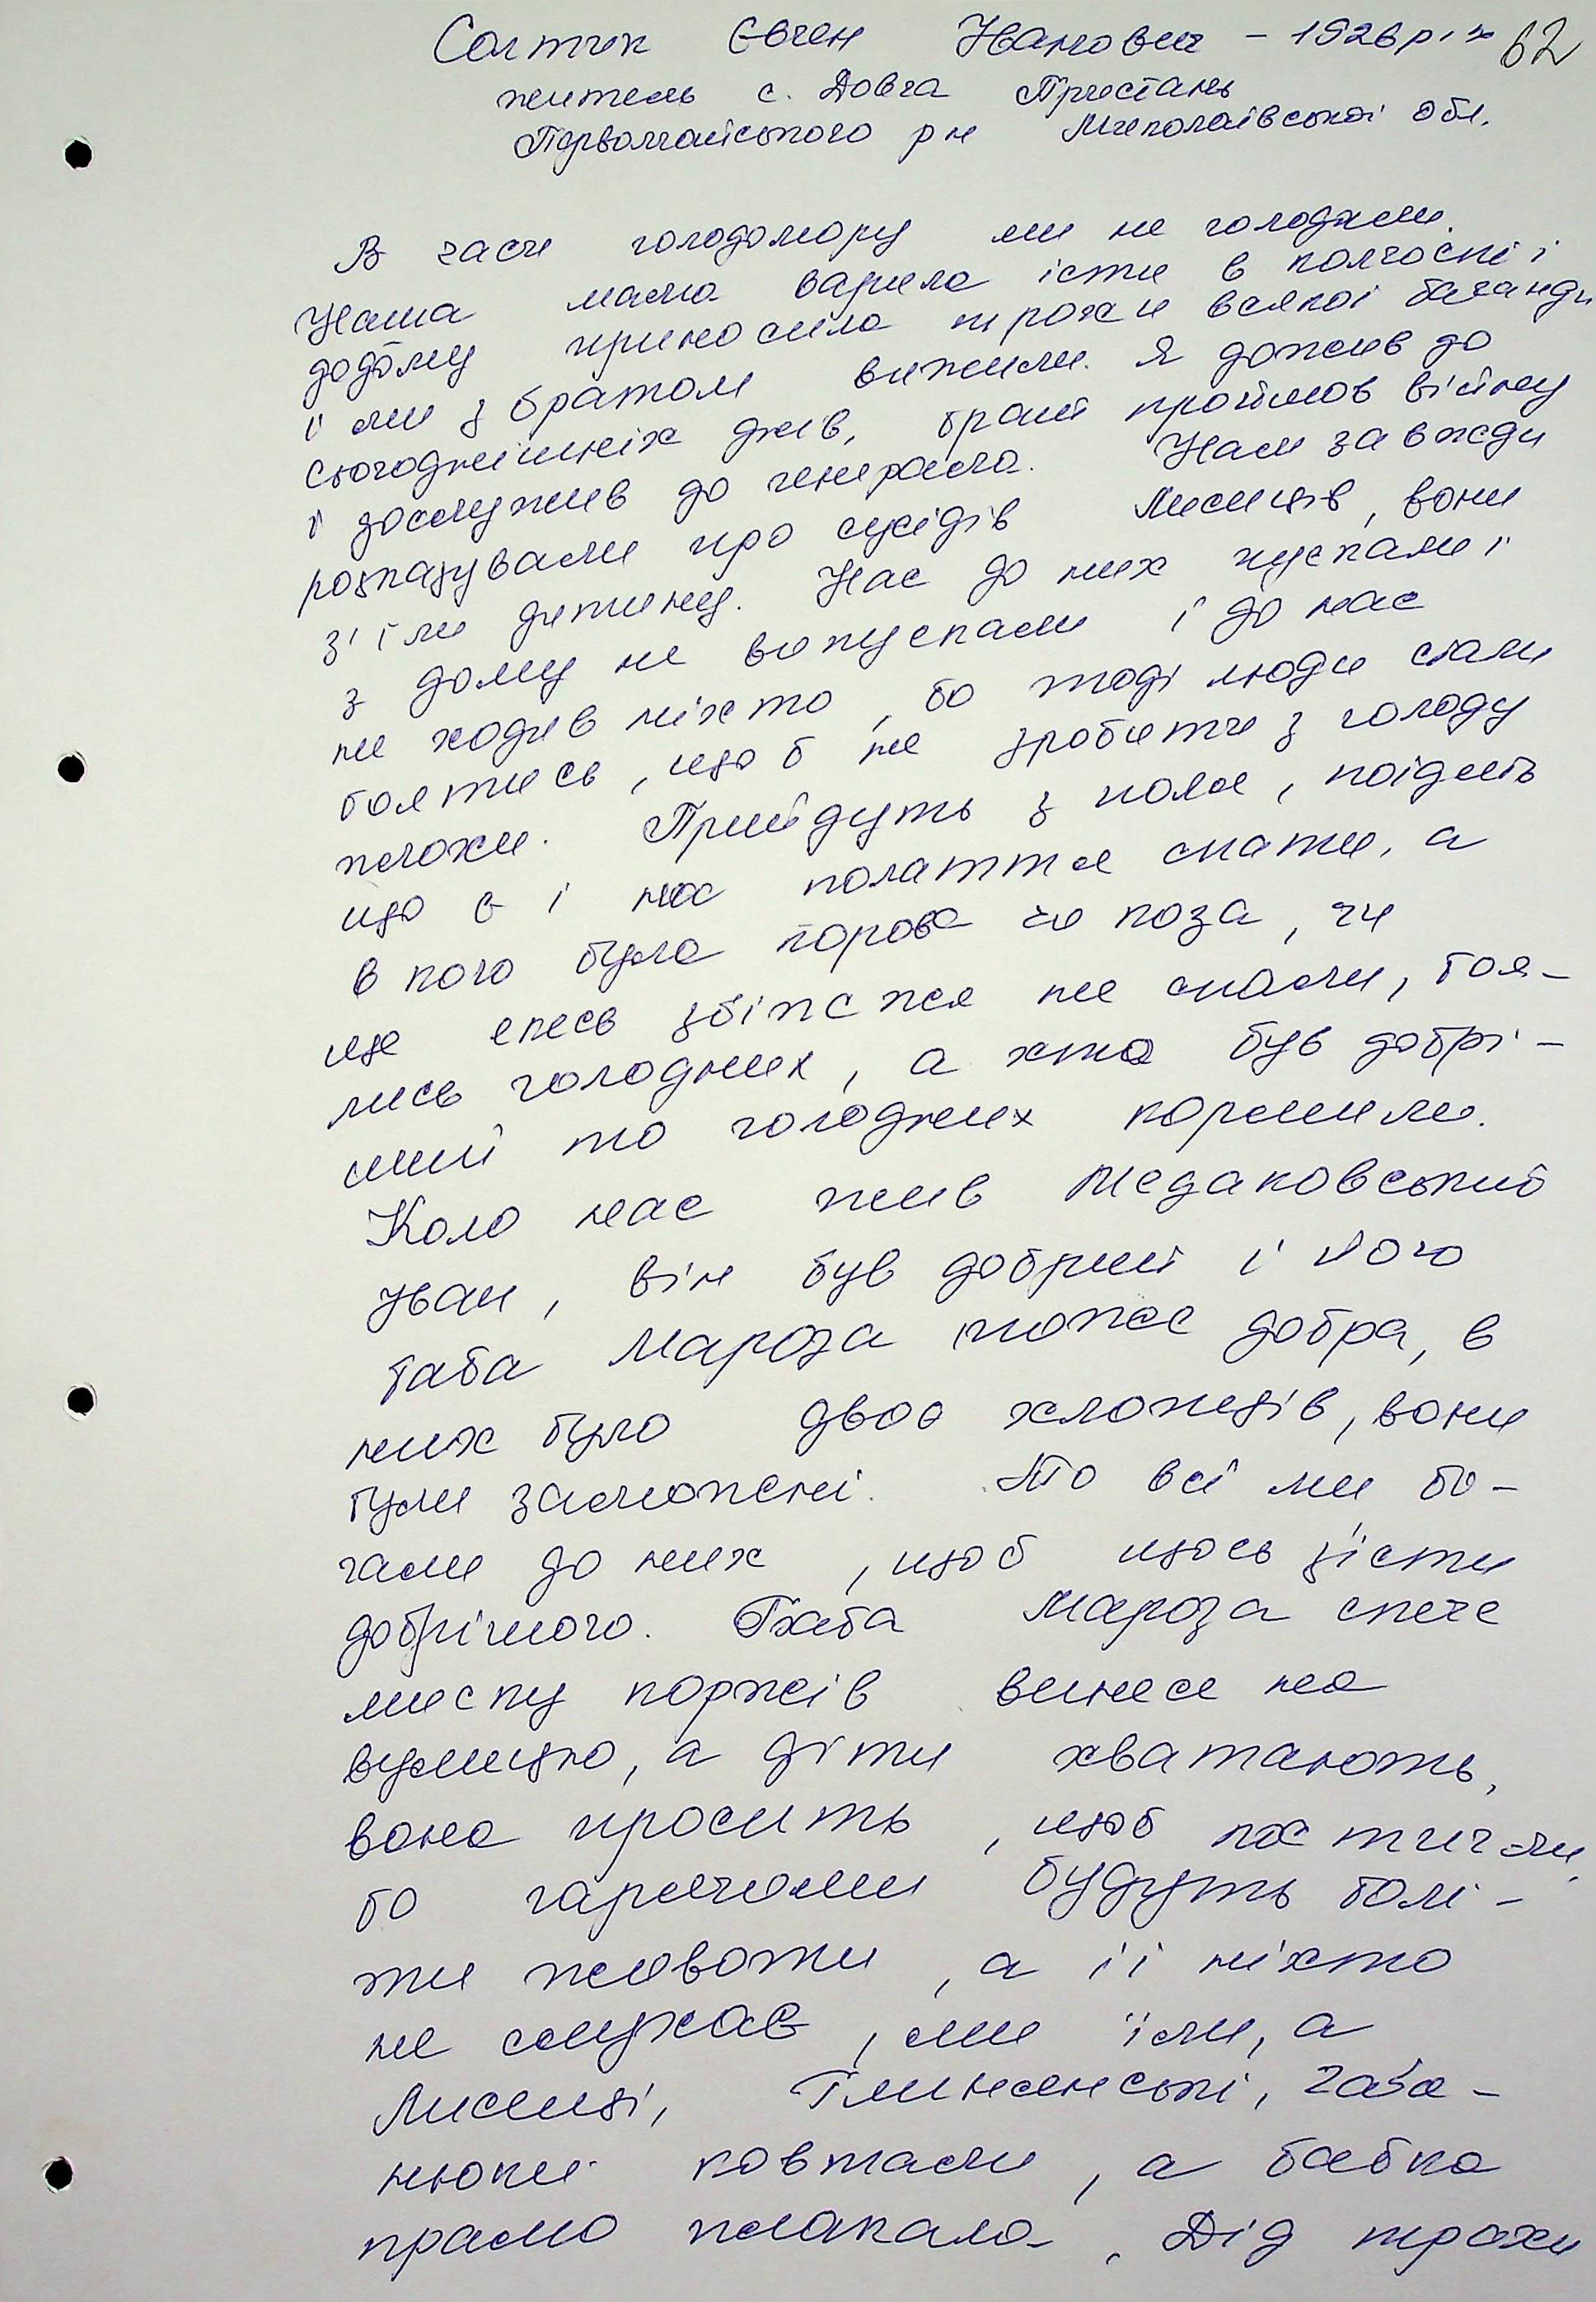 Солтик Євген Іванович - 1926 рік 62
житель с. Довга Пристань
Первомайського р н Миколаївської обл.
В часи голодомору ми не голодали.
Наша мама варила їсти в колгоспі і
додому приносила трохи всякої баланди
і ми з братом вижили. Я дожив до
сьогоднішніх днів, брат пройшов війну
і дослужив до генерала. Нам завжди
розказували про сусідів Лисиців, вони
з'їли дитину. Нас до них пускали і
з дому не випускали і до нас
не ходив ніхто, бо тоді люди стали
боятись, щоб не зробити з голоду
плохи. Прийдуть з поля, поїдять
що є і на полаття спати, а
в кого була корова чи коза, чи
ще якесь збіжжя не спали, боя-
лись голодних, а хто був добрі-
ший то голодних кормили.
Коло нас жив Медаковський
Іван, він був добрий і його
баба Мароза тоже добра, в
них було двоє хлопців, вони
були заможні. То всі ми бі-
гали до них, щоб щось зїсти
добрішого. Баба Мароза спече
миску коржів винесе на
вулицю, а діти хватають,
вона просить, щоб постигли,
бо гарячими будуть болі-
ти животи, а її ніхто
не слухав, ми їли, а
Лисиці, Глинянські,
ковтали, а бабка
прямо плакала. Дід трохи